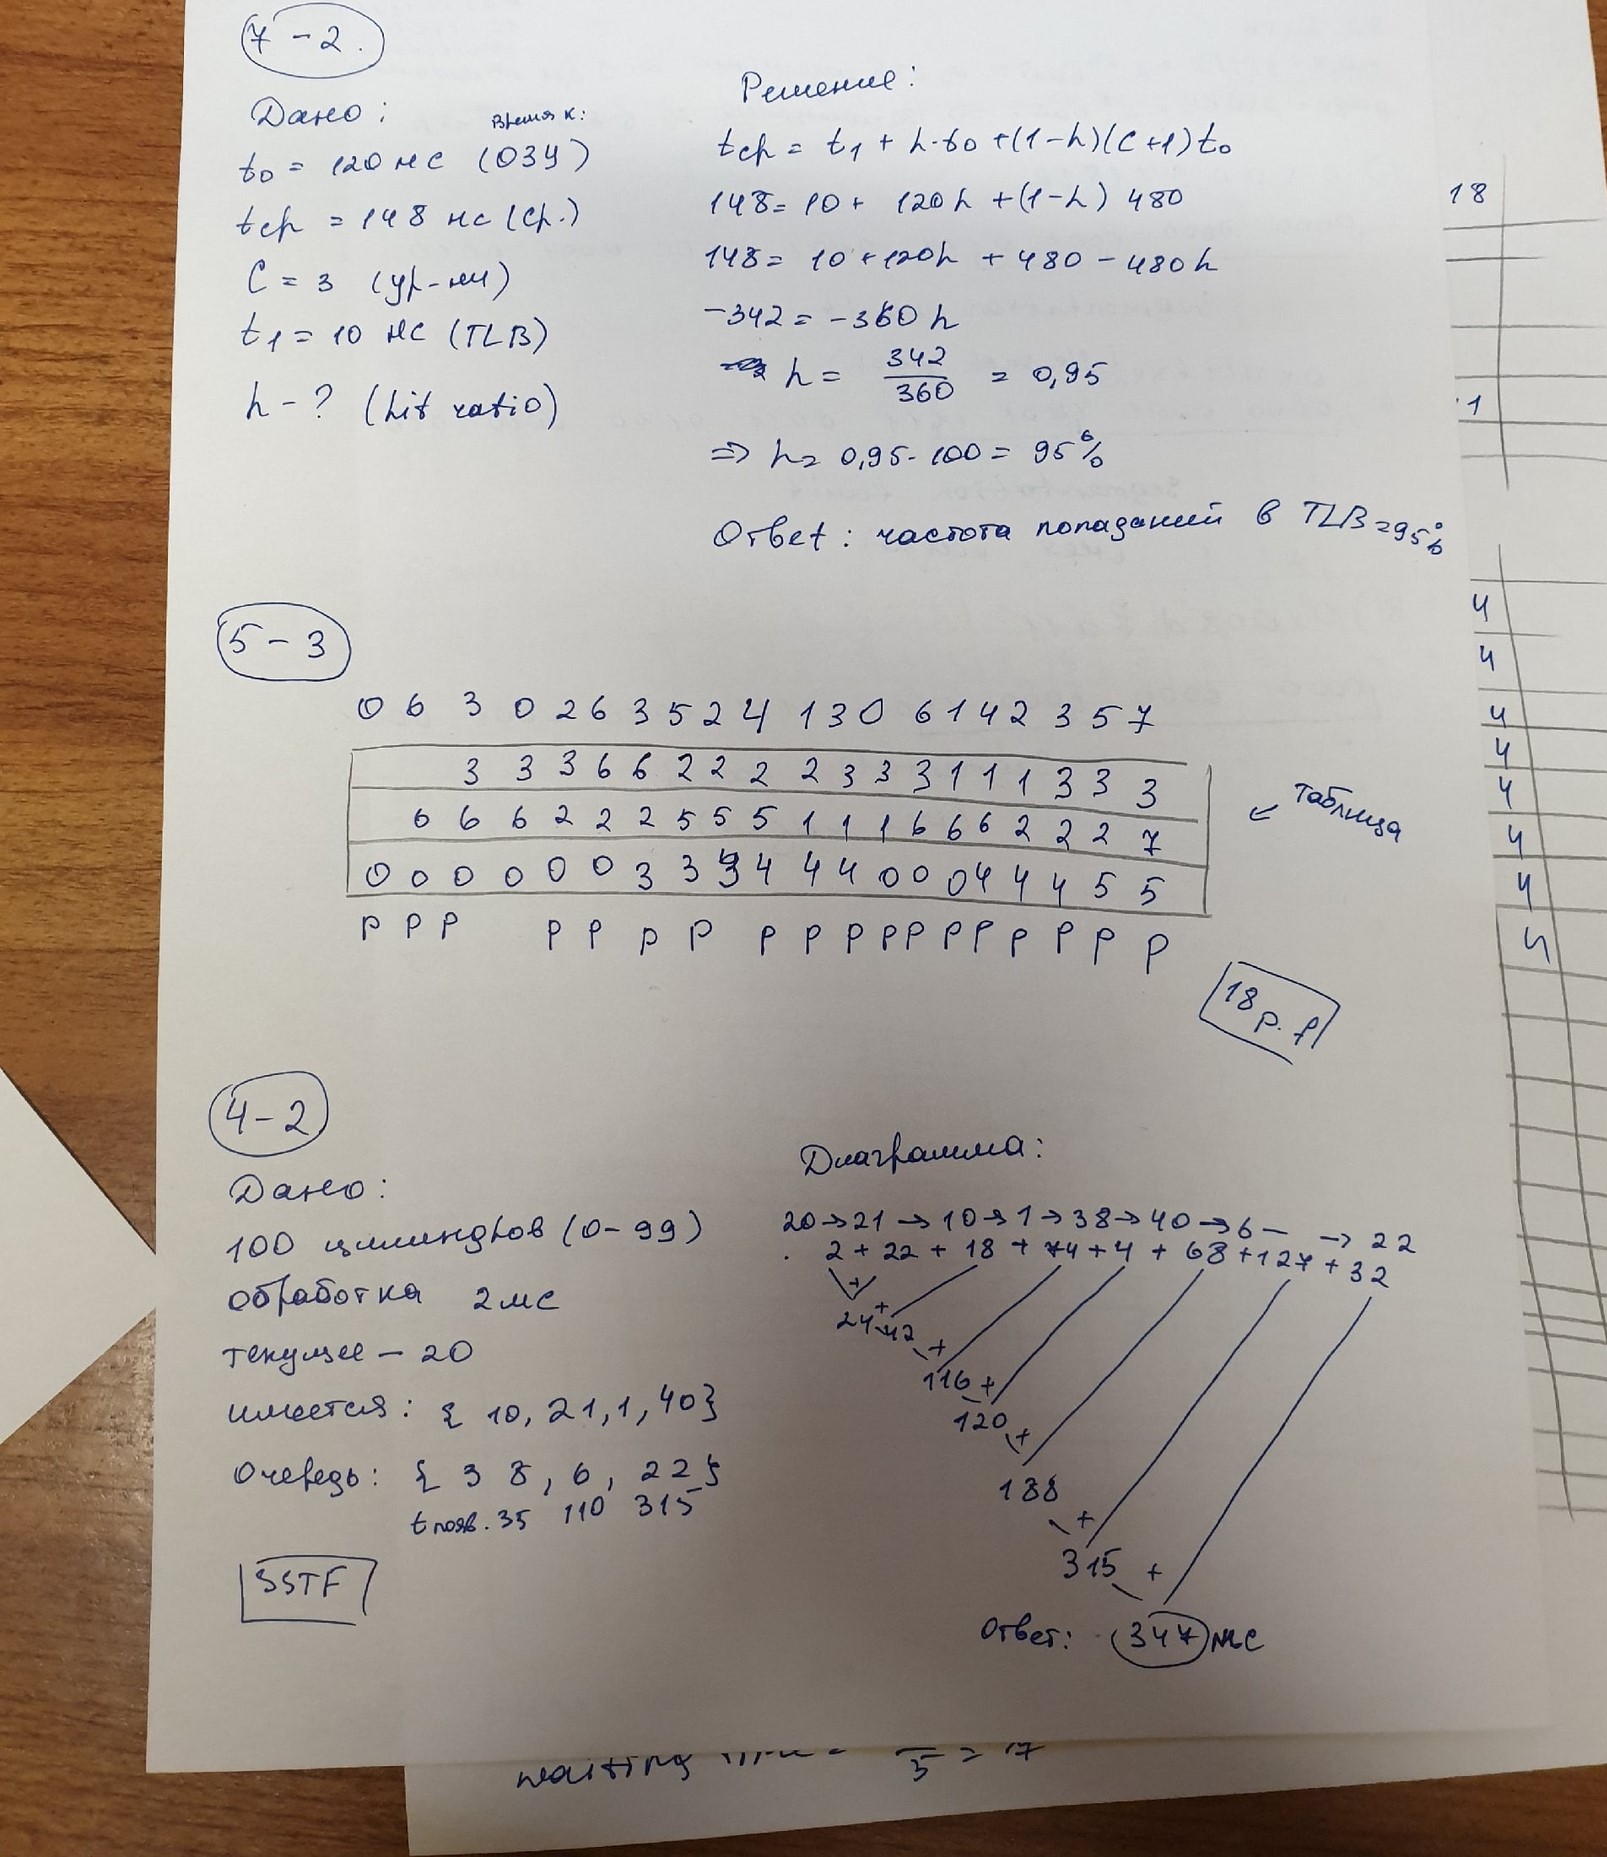 7 - 2.
Дано:
Время к:
t₀ = 120 нс (ОЗУ)
tср = 148 нс (ср.)
C = 3 (ур-ни)
t₁ = 10 нс (TLB)
h - ? (hit ratio)
Решение:
tср = t₁ + h·t₀ + (1-h)(C+1)t₀
148 = 10 + 120h + (1-h) 480
148 = 10 + 120h + 480 - 480h
-342 = -360 h
h = 342/360 = 0,95
=> h = 0,95 · 100 = 95%
Ответ: частота попаданий в TLB = 95%
5 - 3
0 6 3 0 2 6 3 5 2 4 1 3 0 6 1 4 2 3 5 7
3 3 3 6 6 2 2 2 2 3 3 3 1 1 1 3 3 3
6 6 6 2 2 2 5 5 5 1 1 1 6 6 6 2 2 2 7
0 0 0 0 0 0 3 3 3 4 4 4 0 0 0 4 4 4 5 5
p p p p p p p p p p p p p p p p p p
← таблица
18 p.f
4 - 2
Дано:
100 цилиндров (0-99)
обработка 2мс
текущее - 20
имеется: { 10, 21, 1, 40}
Очередь: { 38, 6, 22}
t появ. 35 110 315
SSTF
Диаграмма:
20 → 21 → 10 → 1 → 38 → 40 → 6 — → 22
2 + 22 + 18 + 74 + 4 + 68 + 127 + 32
+
24 + 42 +
116 +
120 +
188 +
315 +
Ответ: 347 мс
18
1
4
4
4
4
4
4
4
4
waiting time = /5 = 17